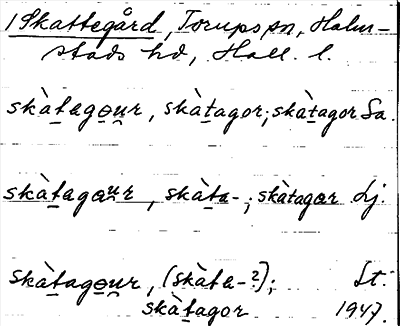 1 Skattegård, Torups sn, Halm-
stads hd, Hall. l.
skàtagour, skàtagor; skàtagor Sa.
skàtagaur, skàta-; skàtagar Lj.
skàtagour, (skàta-?); Lt.
skàtagor 1947.